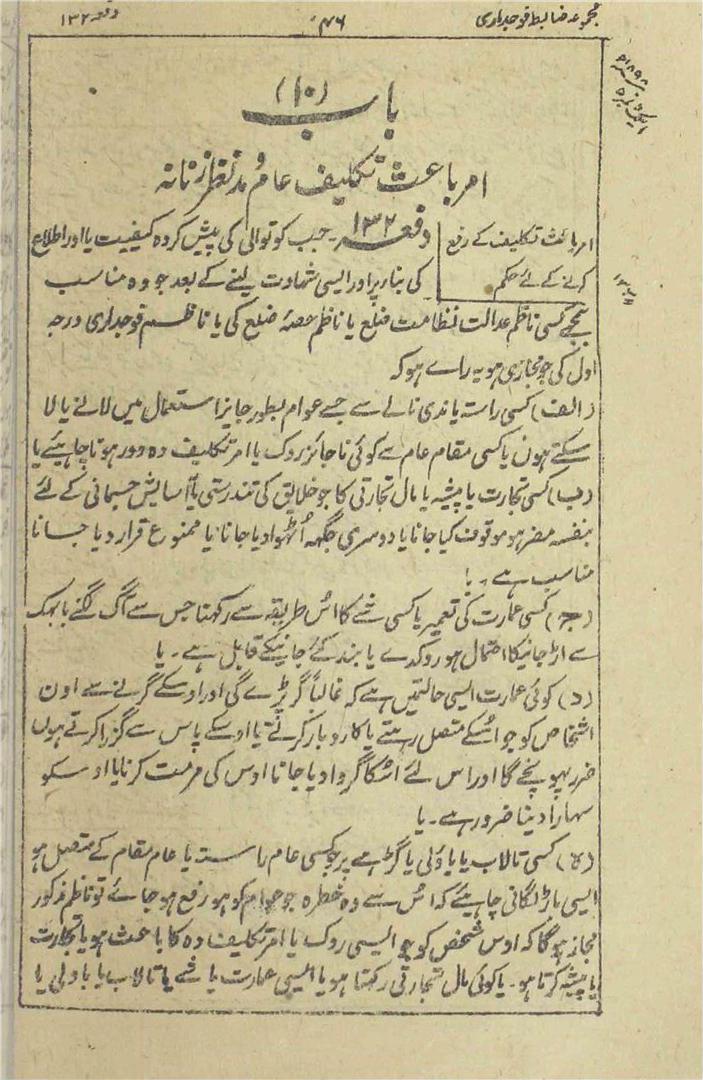 مجموعہ ضابطہ فوجداری ۴۶ دفعہ ۱۳۲
باب (۱۰)
امر باعث تکلیف عام و مدنظر زنانہ
امر باعث تکلیف کے رفع
کرنے کے لئے حکم
دفعہ ۱۳۲ ۔ جب کوتوالی کی پیش کردہ کیفییت یا اور اطلاع
کی بنا پر اور ایسی شہادت لینے کے بعد جو وہ مناسب
سمجھے کسی ناظم عدالت نظامت ضلع یا ناظم حصۂ ضلع کی یا ناظم فوجداری درجہ
اول کی جو مجاز ہی ہو یہ راے ہو کہ
(الف) کسی راستہ یا ندی نالے سے جسے عوام بطور جایز استعمال میں لاتے یا لا
سکتے ہون یا کسی مقام عام سے کوئی ناجائز روک یا امر تکلیف دہ دور ہونا چاہئیے یا
(ب) کسی تجارت یا پیشہ یا مال تجارتی کا جو خلایق کی تندرستی یا آسایش جسمانی کے لئے
بنفسہ مضر ہو موقوف کیا جانا یا دوسری جگہہ اُٹھوا دیا جانا یا ممنوع قرار دیا جانا
مناسب ہے ۔ یا
(ج) کسی عمارت کی تعمیر یا کسی شے کا اس طریقہ سے رکھنا جس سے آگ لگنے یا بھک
سے اڑ جانیکا احتمال ہو روکدے یا بند کئے جانیکے قابل ہے ۔ یا
(د) کوئی عمارت ایسی حالتمیں ہے کہ غالباً گر پڑے گی اور اوسکے گرنے سے اون
اشخاص کو جو اُسکے متصل رہتے یا کاروبار کرتے یا اوسکے پاس سے گزرا کرتے ہوں
ضرر پہونچے گا اور اس لئے اُسکا گروا دیا جانا اوس کی مرمت کرنا یا اوسکو
سہارا دینا ضرور ہے ۔ یا
(ہ) کسی تالاب یا باؤلی یا گڑھے پر جو کسی عام راستہ یا عام مقام کے متصل ہو
ایسی باڑ لگانی چاہیئے کہ اس سے وہ خطرہ جو عوام کو ہو رفع ہو جائے تو ناظم مذکور
مجاز ہوگا کہ اوس شخص کو جو ایسی روک یا امر تکلیف دہ کا باعث ہو یا تجارت
یا پیشہ کرتا ہو ۔ یا کوئی مال تجارتی رکھتا ہو یا ایسی عمارت یا شے یا تالاب یا باولی یا